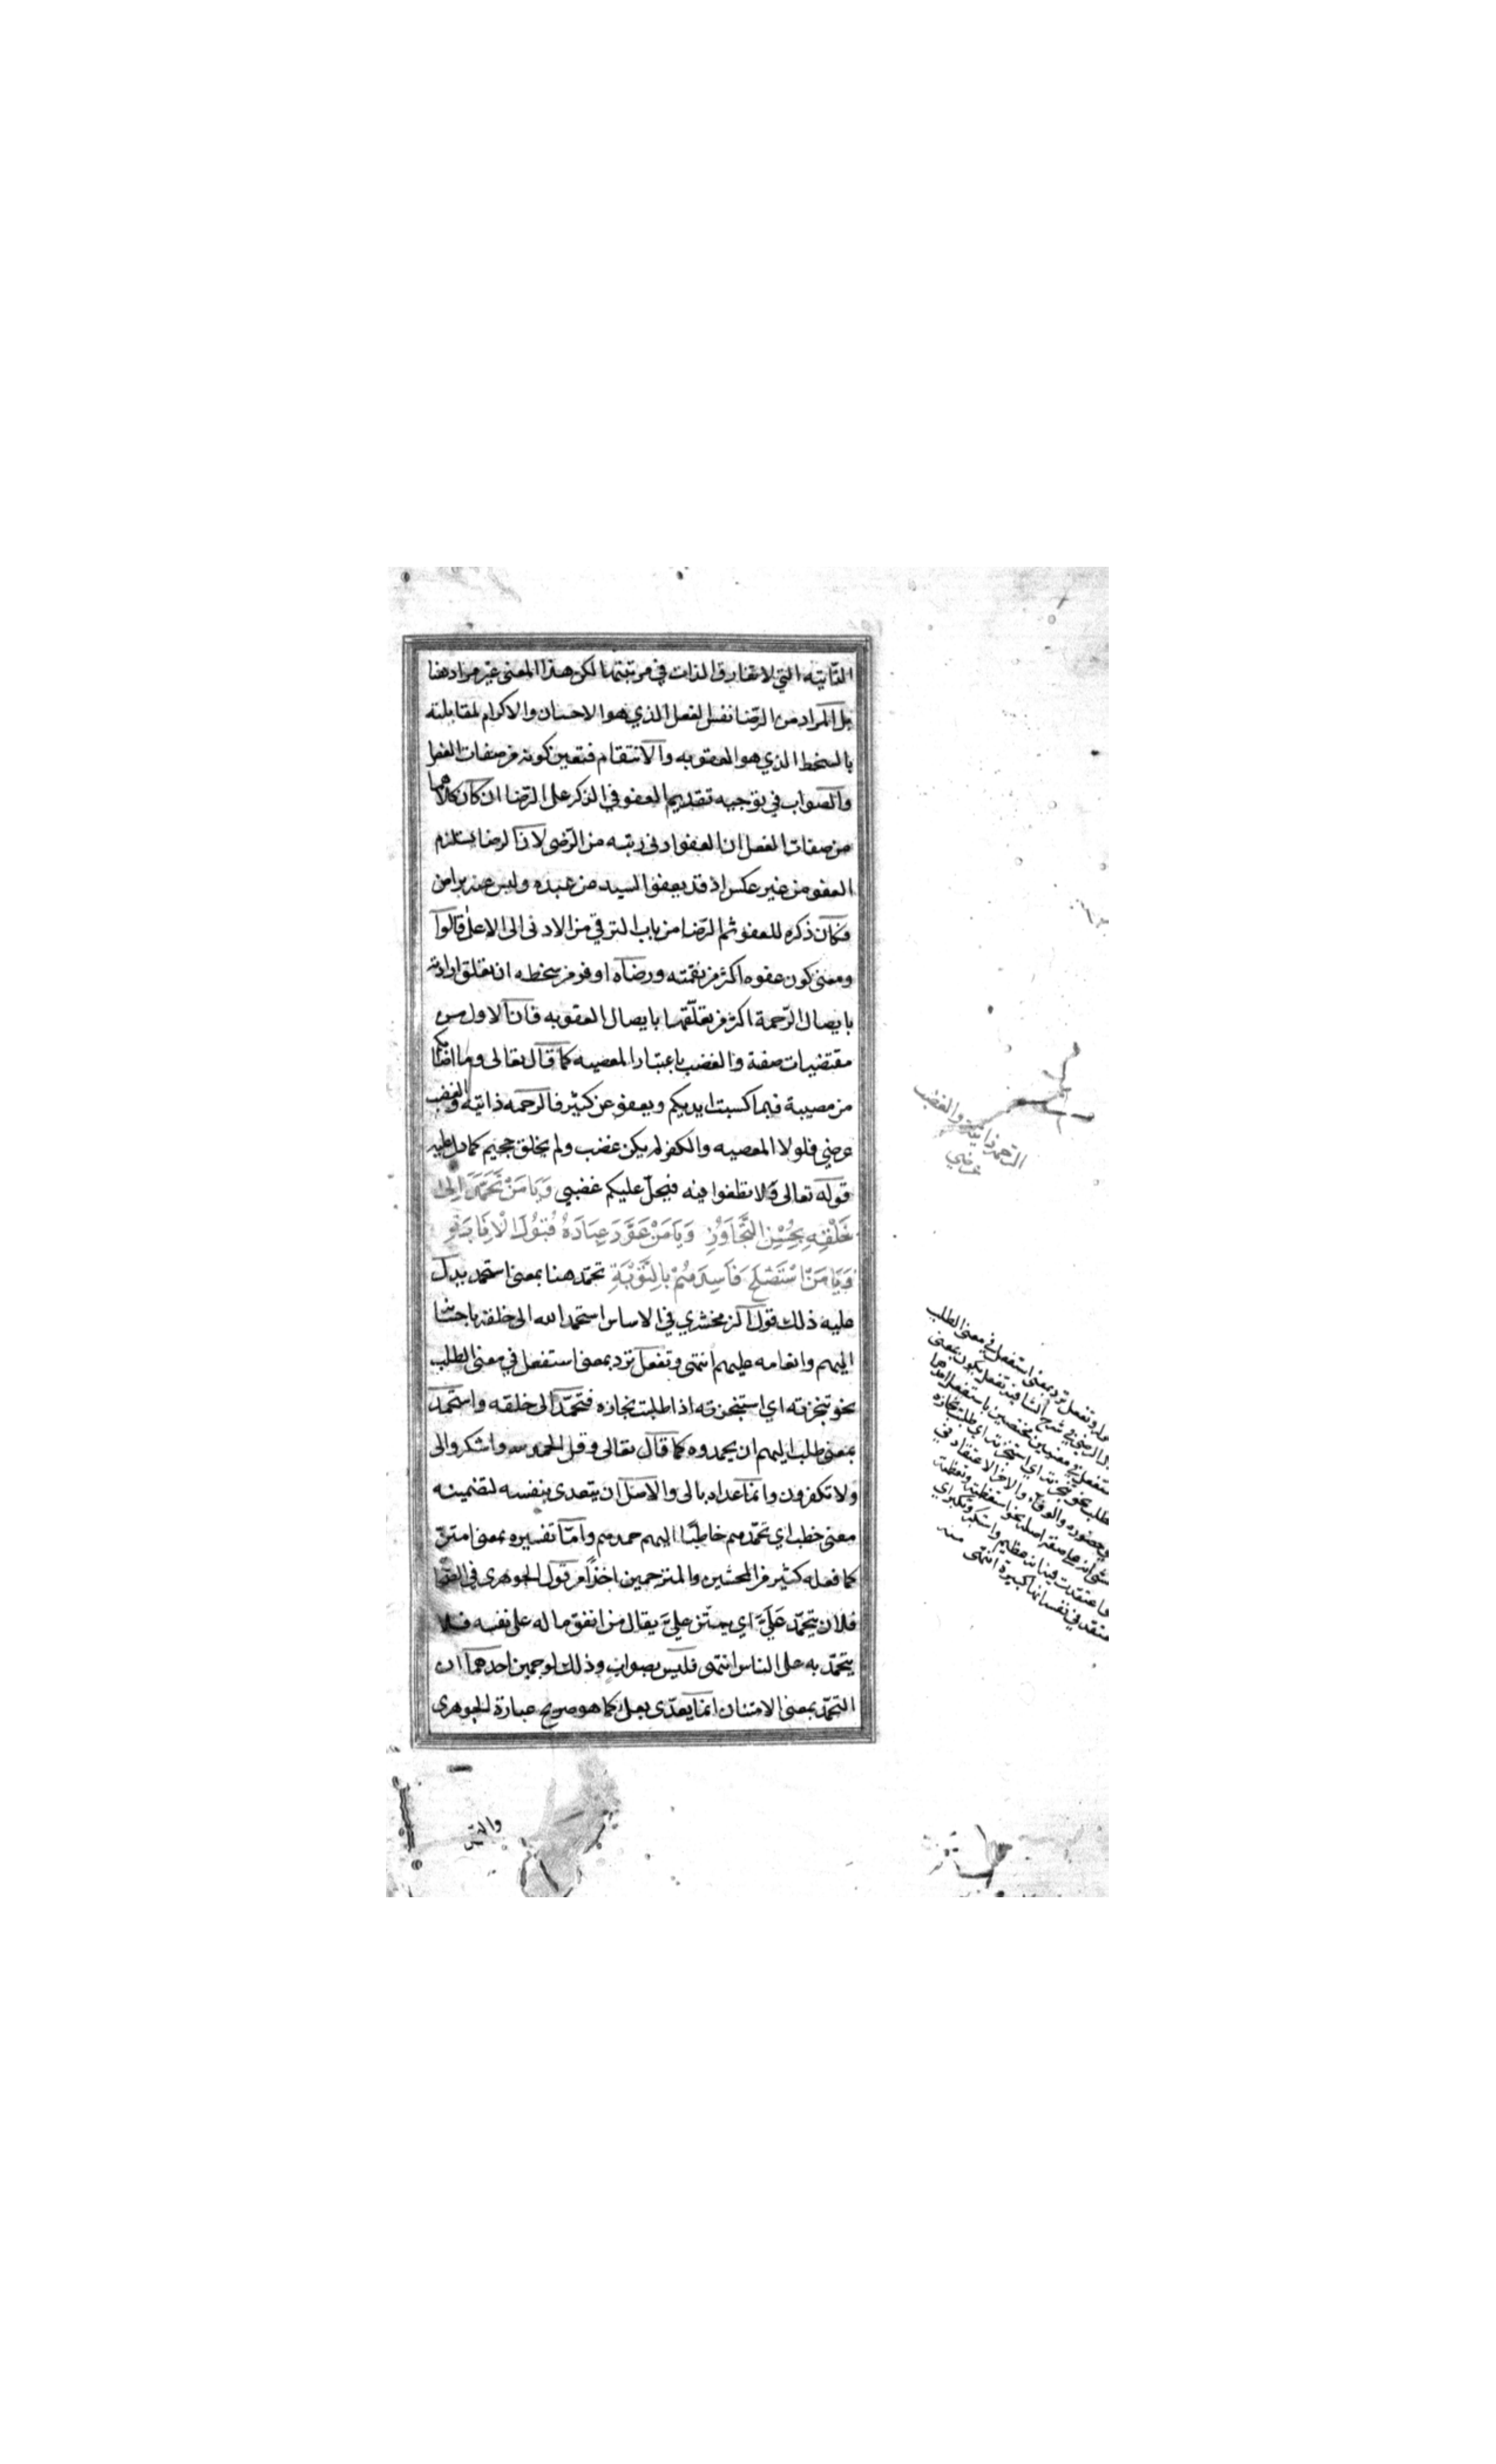 الذاتيه التي لا تفارق الذات في مرتبتها لكن هذا المعنى غير مراد هنا
بل المراد من الرّضا نفس الفعل الذي هو الاحسان والاكرام لمقابلته
بالسخط الذي هو العقوبه والانتقام فتعين كونه من صفات الفعل
والصواب في توجيه تقديم العفو في الذكر على الرّضا ان كان كلاهما
من صفات الفعل ان العفو ادنى رتبه من الرّضى لان الرضا يستلزم
العفو من غير عكس اذ قد يعفو السيد من عبده وليس عنه براض
فكان ذكره للعفو ثم الرّضا من باب الترقي من الادنى الى الاعلى قالوا
ومعنى كون عفوه اكثر من نقمته ورضاه اوفر من سخطه ان تعلق ارادته
بايصال الرّحمة اكثر من تعلّقها بايصال العقوبه فان الاول من
مقتضيات صفة والغضب باعتبار المعصيه كما قال تعالى وما اصابكم
من مصيبة فبما كسبت ايديكم ويعفو عن كثير فالرحمه ذاتيه والغضب
عرضي فلولا المعصيه والكفر لم يكن غضب ولم يخلق جحيم كما دل عليه
قوله تعالى ولا تطغوا فيه فيحلّ عليكم غضبي وَيَا مَنْ تَحَمَّدَ اِلىٰ
خَلْقِهِ بِحُسْنِ التَّجَاوُزِ وَيَا مَنْ عَوَّدَ عِبَادَهُ قَبُولَ الْاِنَابَةِ
وَيَا مَنْ اسْتَصْلَحَ فَاسِدَهُمْ بِالتَّوْبَةِ تحمّد هنا بمعنى استحمد يدل
عليه ذلك قول الزمخشري في الاساس استحمد الله الى خلقه باحسانه
اليهم وانعامه عليهم انتهى وتفعل ترد بمعنى استفعل في معنى الطلب
نحو تنجزته اي استنجزته اذا طلبت نجازه فتحمّد الى خلقه واستحمد
بمعنى طلب اليهم ان يحمدوه كما قال تعالى وقل الحمد لله واشكروا لي
ولا تكفرون وانما عداه بالى والاصل ان يتعدى بنفسه لتضمينه
معنى خطب اي تحمّدهم خاطبًا اليهم حمدهم وامّا تفسيره بمعنى امتنّ
كما فعله كثير من المحشين والمترجمين اخذًا من قول الجوهرى في الصحاح
فلان يتحمّد عَلَيَّ اي يمتّن عليَّ يقال من انفق ماله على نفسه فلا
يتحمّد به على الناس انتهى فليس بصواب وذلك لوجهين احدهما ان
التحمّد بمعنى الامتنان انما يعدّى بعلى كما هو صريح عبارة الجوهرى
والثاني
الرحمة ذاتية والغضب
عرضي
وتفعل ترد بمعنى استفعل في معنى الطلب
الرضي في شرح الشافيه تفعل يكون بمعنى
استفعل في معنيين مختصين باستفعل احدهما
الطلب نحو تنجزته اي استنجزته اي طلبت نجازه
حضوره والوفاء والاخر الاعتقاد في
الشئ انه على صفة اصله نحو استعظمته وتعظمته
اعتقدت فيه انه عظيم واستكبر وتكبر اي
اعتقد في نفسه انها كبيرة انتهى منه